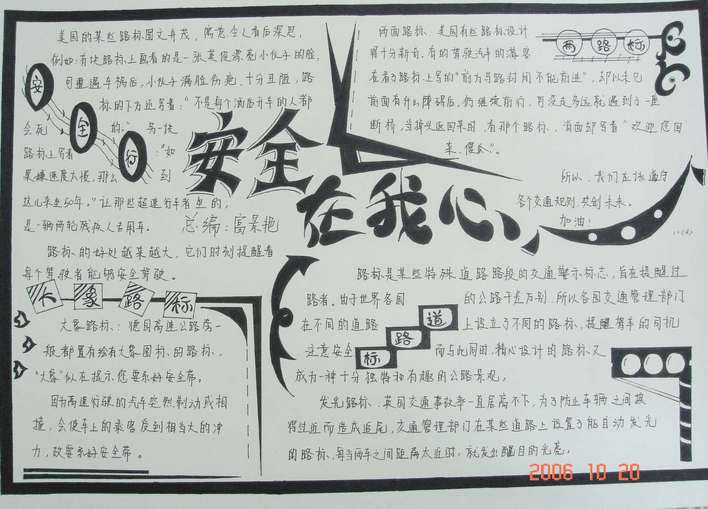 美国的某些路标图文并茂，寓意令人看后深思，
例如：有块路标上画着的是一张英俊漂亮小伙子的脸，
可遭遇车祸后，小伙子满脸伤疤，十分丑陋，路
标的下方还写着："不是每个酒后开车的人都
会死的。"另一块
路标上写着："如
果嫌速度太慢，那么到
这儿来走50年。"让那些超速行手看是的，
是一辆两轮残疾人专用车。
路标的好处越来越大，它们时刻提醒着
每个驾驶者能够安全驾驶。
安全行
安全
在我心
总编：高景艳
两面路标
两面路标：美国有些路标设计
得十分新奇，有的驾驶汽车的游客
在看了路标上写的"前方马路封闭不能前进"，却以未见
前面有什么障碍后，仍继续前行，可没走多远就遇到了一座
断桥，当掉头返回来时，看那个路标，背面却写着"欢迎您回
来，傻瓜"。
所以，我们应该遵守
各个交通规则，共创未来。
加油！
大象路标
大象路标：德国高速公路旁一
般都置有绘有大象图标的路标，
"大象"似在提示您要系好安全带。
因为高速行驶的汽车突然制动或相
撞，会使车上的乘客受到相当大的冲
力，故要系好安全带。
道路标
路标是某些特殊道路路段的交通警示标志，旨在提醒过
路者。由于世界各国的公路千差万别，所以各国交通管理部门
在不同的道路上设立了不同的路标，提醒驾车的司机
注意安全，而与此同时，精心设计的路标又
成为一种十分独特和有趣的公路景观。
发光路标：英国交通事故率一直居高不下，为了防止车辆之间挨
得过近而造成追尾，交通管理部门在某些道路上设置了能自动发光
的路标，每当两车之间距离太近时，就发出醒目的光亮。
2006 10 20